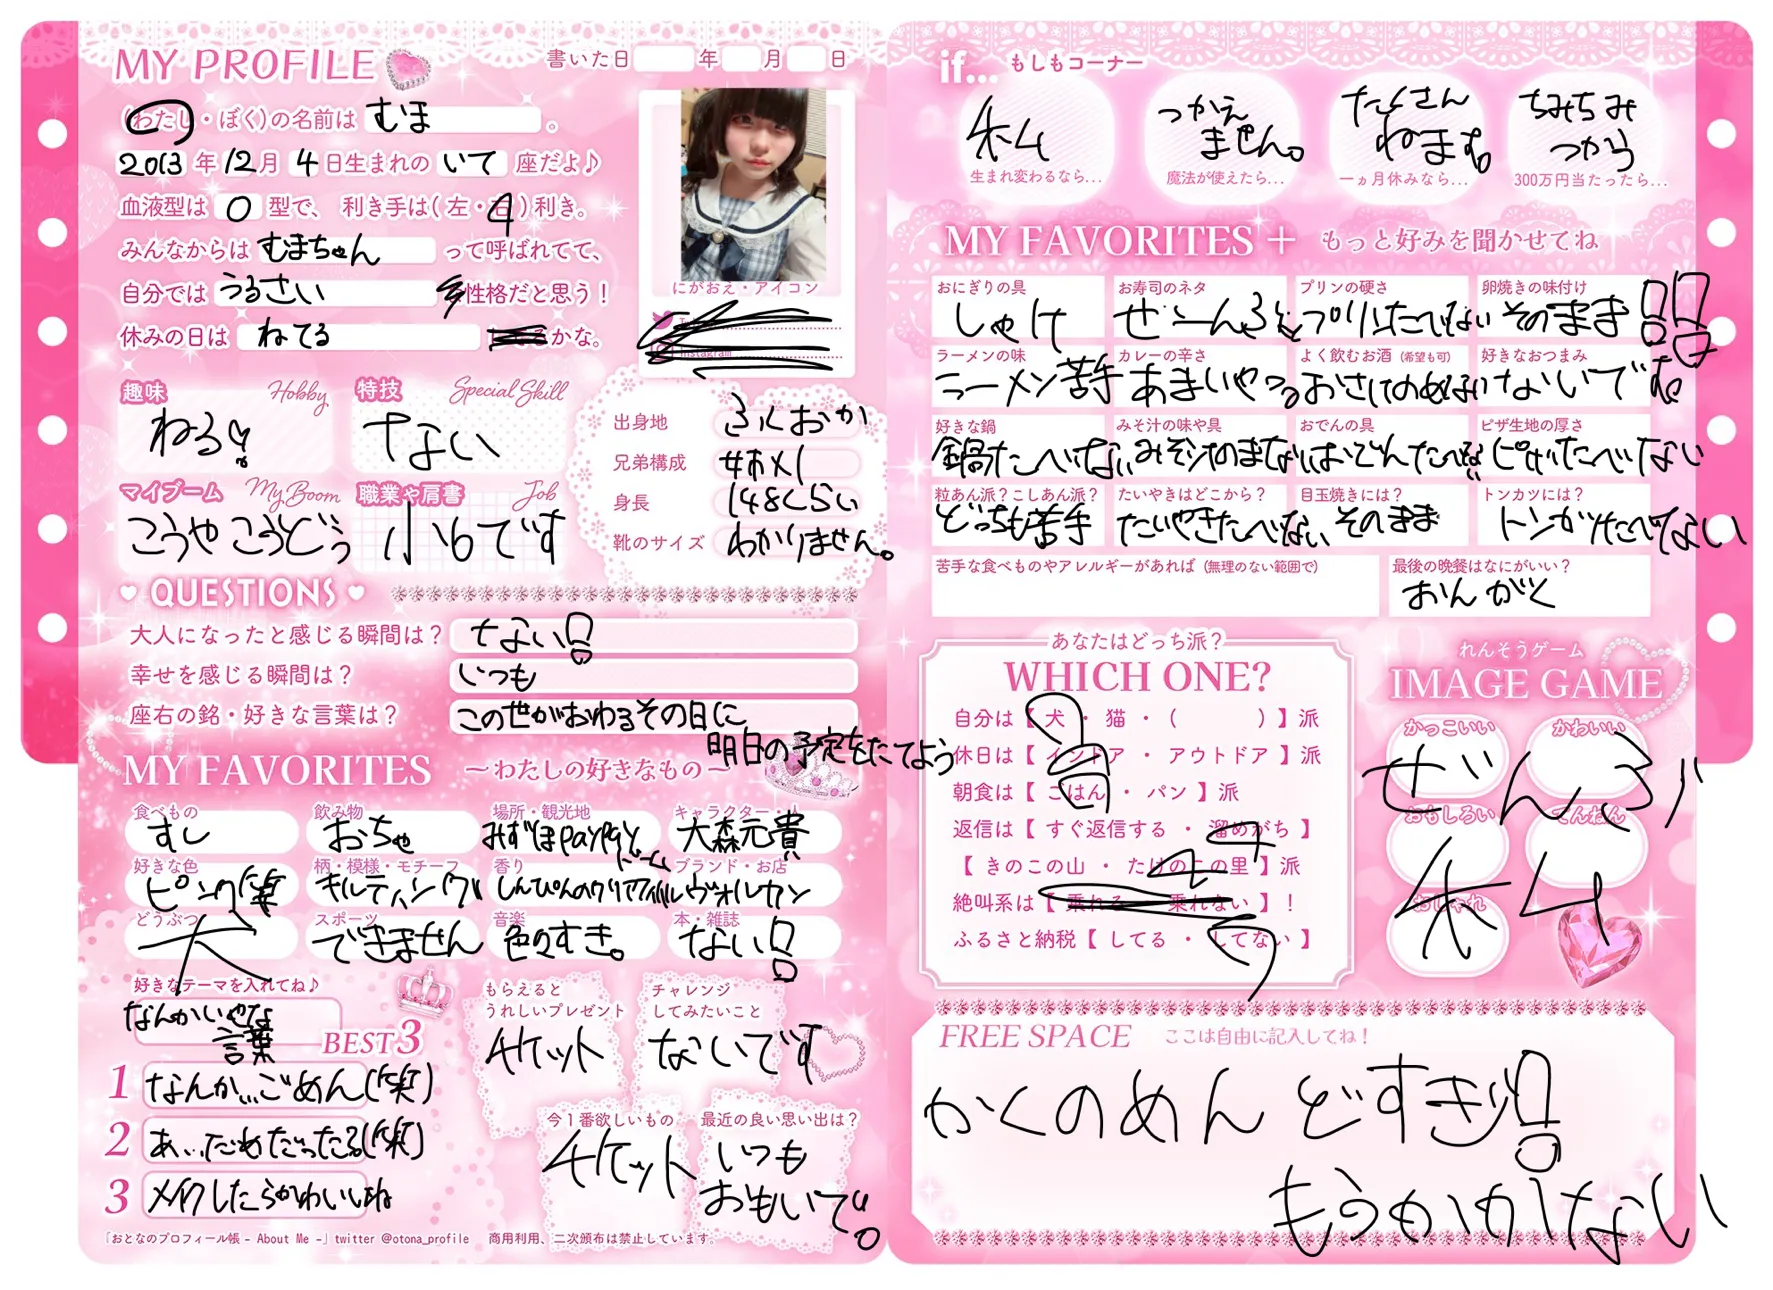 MY PROFILE
書いた日 年 月 日
(わたし・ぼく)の名前は むま 。
2013年12月4日生まれの いて 座だよ♪
血液型は O 型で、 利き手は(左・右)利き。
みんなからは むまちゃん って呼ばれてて、
自分では うるさい 性格だと思う!
休みの日は ねてる かな。
にがおえ・アイコン
趣味 Hobby
ねる
特技 Special Skill
ない
マイブーム My Boom
こうやこうどう
職業や肩書 Job
小6です
出身地 ふくおか
兄弟構成
身長 148くらい
靴のサイズ わかりません。
QUESTIONS
大人になったと感じる瞬間は? ない!
幸せを感じる瞬間は? いつも
座右の銘・好きな言葉は? この世がおわるその日に
明日の予定をたてよう
MY FAVORITES ~わたしの好きなもの~
食べもの すし
飲み物 おちゃ
場所・観光地 みずほpaypayドーム
キャラクター 大森元貴
好きな色 ピンク
柄・模様・モチーフ キルティング
香り しんぴんのクリアファイル
ブランド・お店 ヴォルカン
どうぶつ 犬
スポーツ できません
音楽 色々すき。
本・雑誌 ない!
好きなテーマを入れてね♪
なんかいやな
言葉
BEST3
1 なんか...ごめん(笑)
2 あ...だめだったる(笑)
3 メイクしたらかわいいね
もらえると
うれしいプレゼント
チケット
チャレンジ
してみたいこと
ないです
今1番欲しいもの
チケット
最近の良い思い出は?
いつも
おもいで。
「おとなのプロフィール帳 - About Me -」twitter @otona_profile 商用利用、二次頒布は禁止しています。
if... もしもコーナー
木4
生まれ変わるなら...
つかえ
ません。
魔法が使えたら...
たくさん
ねます。
一ヵ月休みなら...
ちみちみ
つかう
300万円当たったら...
MY FAVORITES + もっと好みを聞かせてね
おにぎりの具 しゃけ
お寿司のネタ ぜーんぶ
プリンの硬さ プリンたべない
卵焼きの味付け そのまま!!
ラーメンの味 ラーメン苦手
カレーの辛さ あまいやつ
よく飲むお酒 (希望も可) おさけのめない
好きなおつまみ ないです
好きな鍋 鍋たべない
みそ汁の味や具 みそ汁のまない
おでんの具 おでんたべない
ピザ生地の厚さ ピザたべない
粒あん派?こしあん派? どっちも苦手
たいやきはどこから? たいやきたべない
目玉焼きには? そのまま
トンカツには? トンカツたべない
苦手な食べものやアレルギーがあれば (無理のない範囲で)
最後の晩餐はなにがいい?
おんがく
あなたはどっち派?
WHICH ONE?
自分は【 犬 ・ 猫 ・ ( ) 】派
休日は【 インドア ・ アウトドア 】派
朝食は【 ごはん ・ パン 】派
返信は【 すぐ返信する ・ 溜めがち 】
【 きのこの山 ・ たけのこの里 】派
絶叫系は【 乗れる ・ 乗れない 】!
ふるさと納税【 してる ・ してない 】
れんそうゲーム
IMAGE GAME
かっこいい
かわいい
おもしろい
てんねん
おしゃれ
ぜんぶ
木4
FREE SPACE ここは自由に記入してね!
かくのめんどすぎ!
もうかかけない